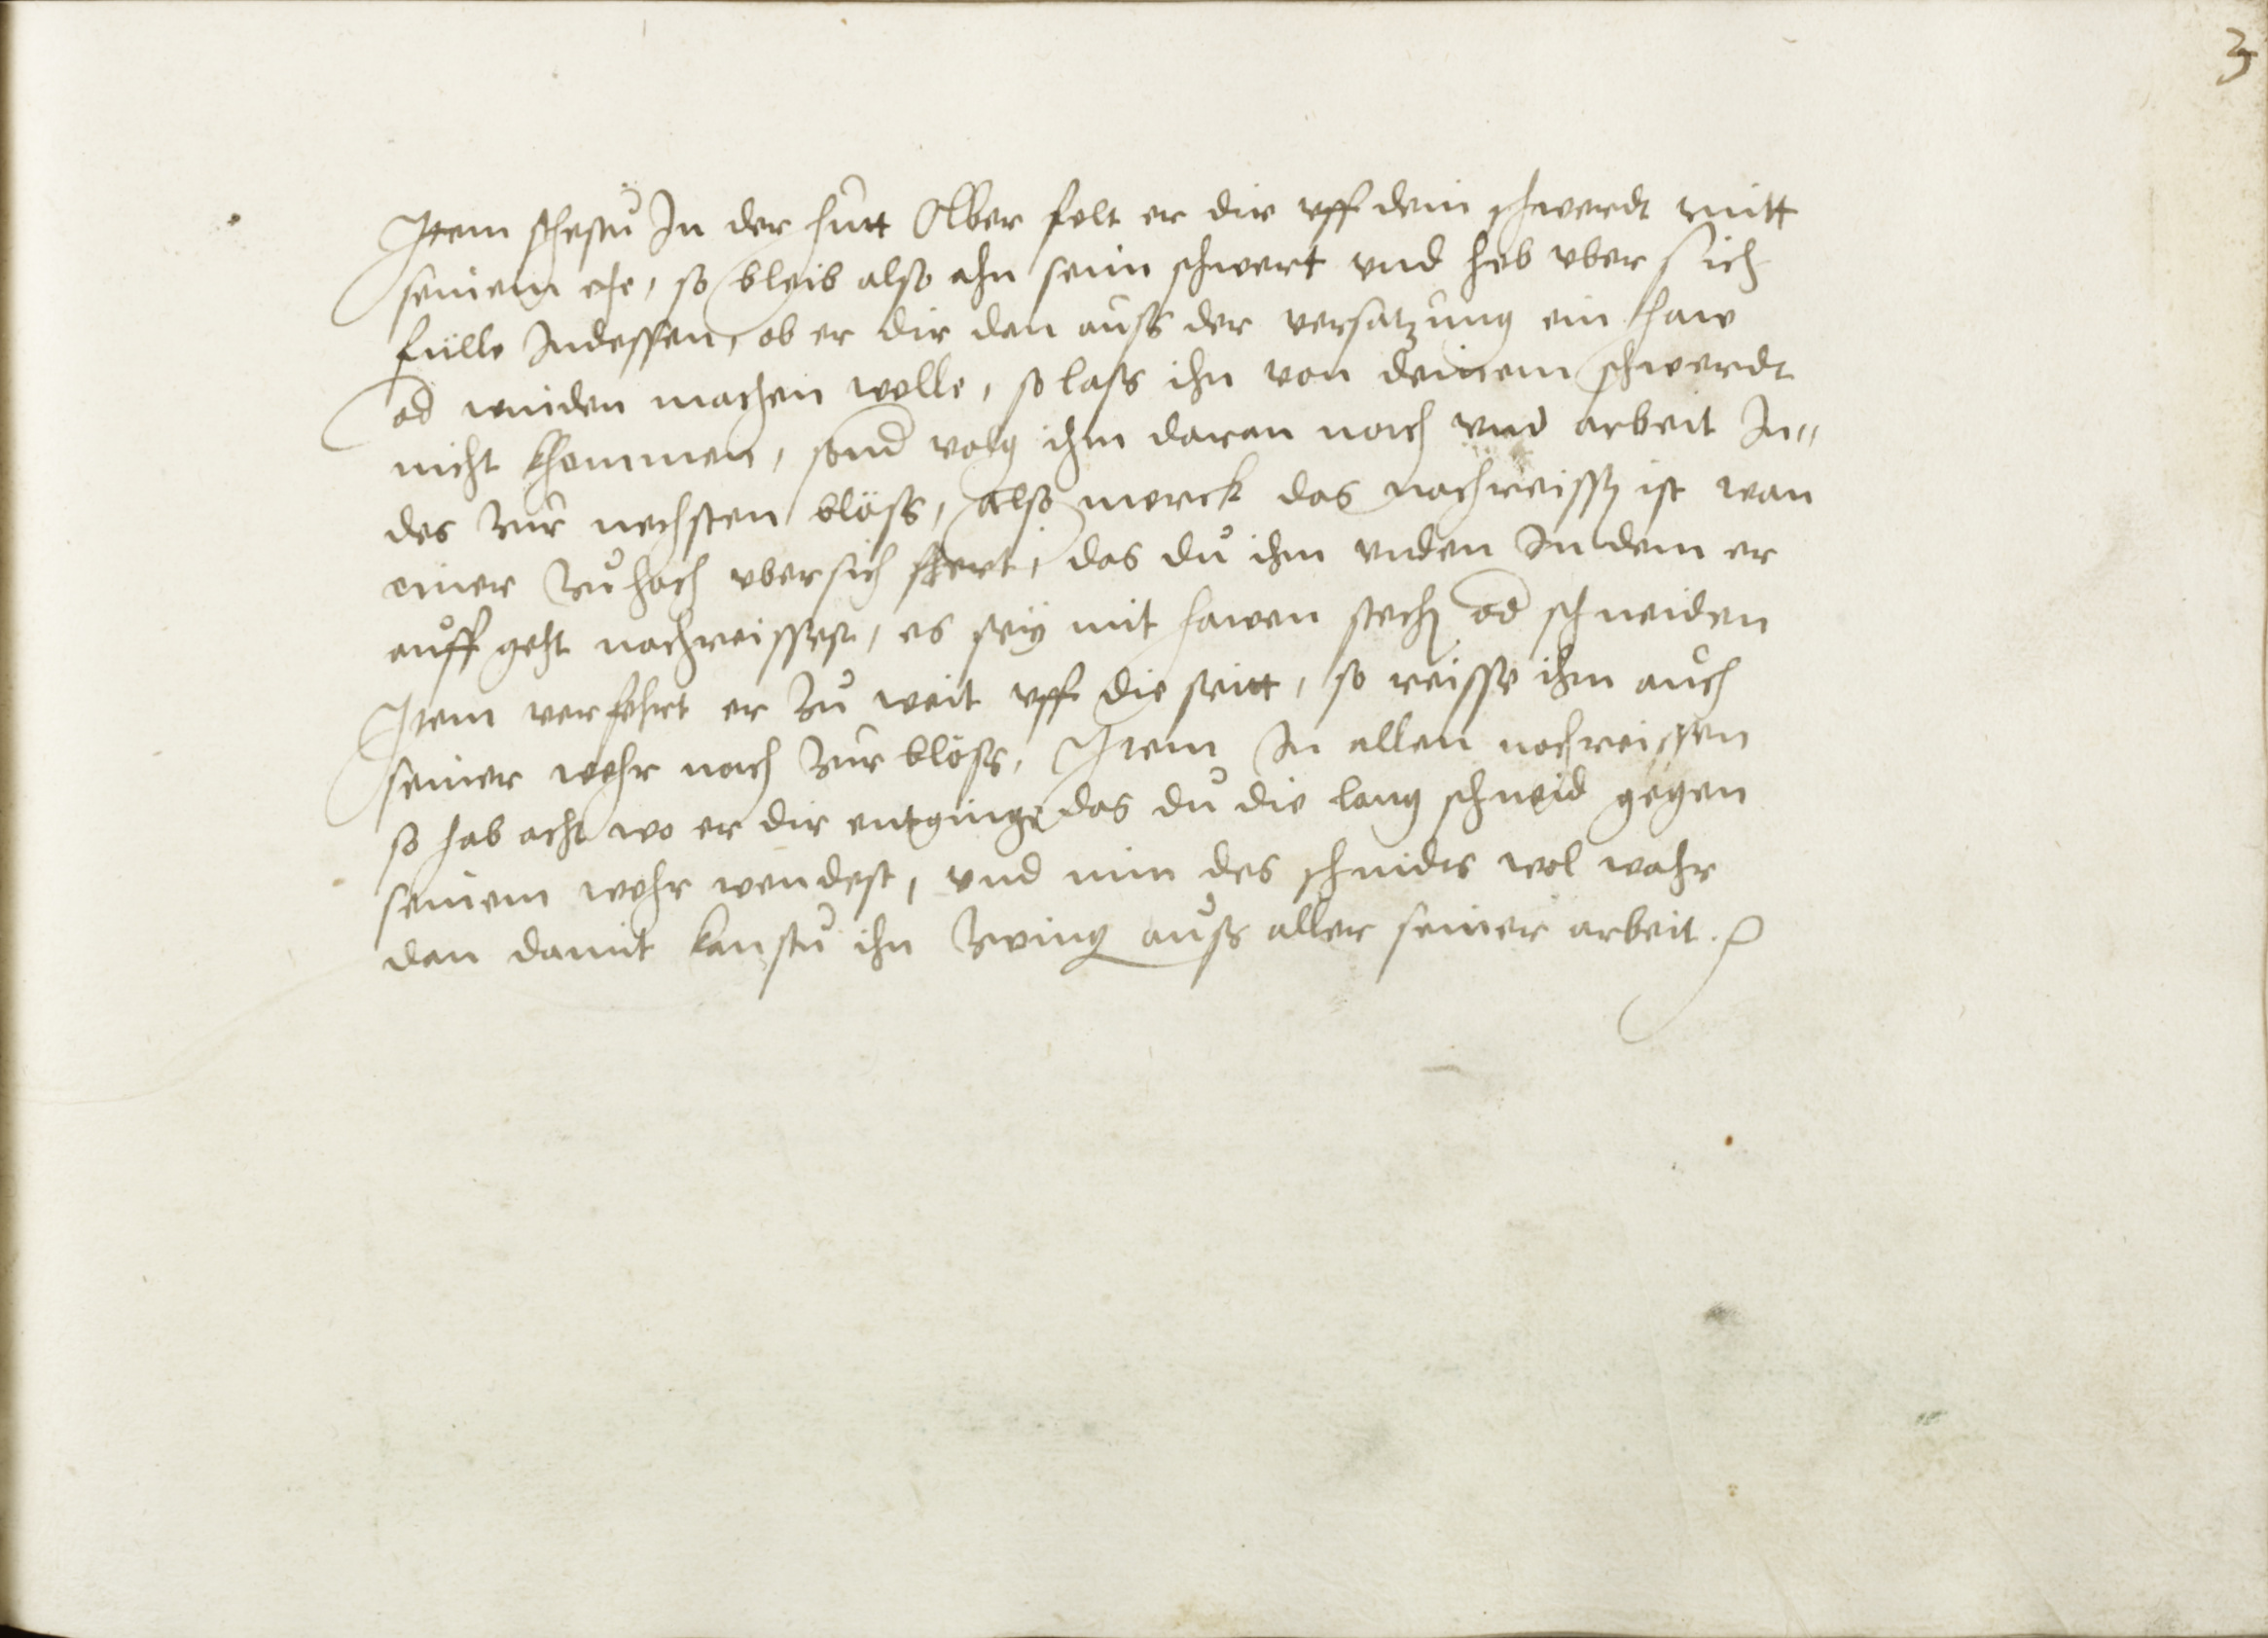 3
Item stehestu In der hutt Olber felt er dir vff dein schwerdt mitt
seinem ehe, so bleib also ahn seim schwert vnd heb vber sich
fülle Indessen, ob er dir dan auss der versatzung ein haw
od winden machen wolle, so lass ihn von deinem schwerdt
nicht khommen, sond volg ihm daran nach vnd arbeit In„
des zur nechsten blöss, also merck das nachreissen ist wan
einer zu hoch vbersich fhert, das du ihm vnden In dem er
auff geht nachreissest, es seÿ mit hawen stechen od schneiden
Item verfehrt er zu weit vff die seitt, so reisse ihm auch
seiner wehr nach zur blöss, Item In allen nachreissen
so hab acht wo er dir entginge das du die lang schneid gegen
seinem wehr wendest, vnd nim des schnidts wol wahr
dan damit kanstu ihn zwing auss aller seiner arbeit.